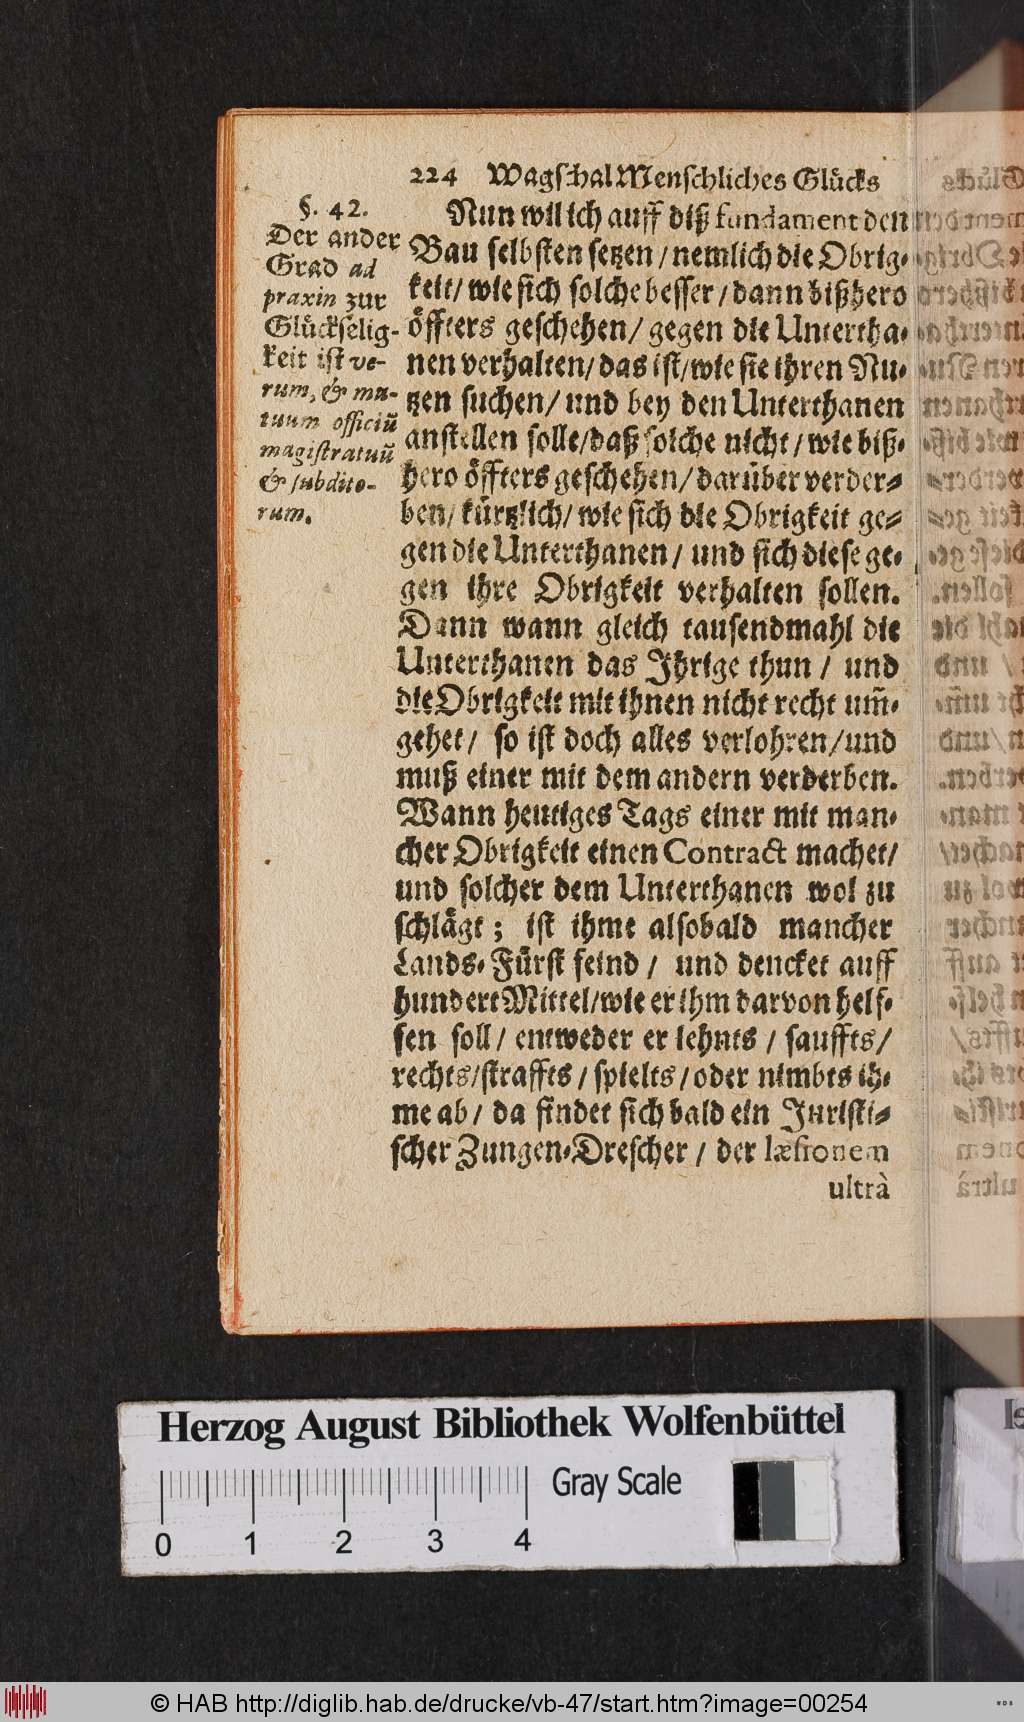 224 Wagschal Menschliches Glücks
§. 42.
Der ander
Grad ad
praxin zur
Glückselig-
keit ist ve-
rum, & mu-
tuum officiū
magistratuū
& subdito-
rum.
Nun wil ich auff diß fundament den
Bau selbsten setzen / nemlich die Obrig-
keit / wie sich solche besser / dann bißhero
öffters geschehen / gegen die Untertha-
nen verhalten / das ist / wie sie ihren Nu-
tzen suchen / und bey den Unterthanen
anstellen solle / daß solche nicht / wie biß-
hero öffters geschehen / darüber verder-
ben / kürtzlich / wie sich die Obrigkeit ge-
gen die Unterthanen / und sich diese ge-
gen ihre Obrigkeit verhalten sollen.
Dann wann gleich tausendmahl die
Unterthanen das Jhrige thun / und
die Obrigkeit mit ihnen nicht recht um̃-
gehet / so ist doch alles verlohren / und
muß einer mit dem andern verderben.
Wann heutiges Tags einer mit man-
cher Obrigkeit einen Contract machet /
und solcher dem Unterthanen wol zu
schlägt ; ist ihme alsobald mancher
Lands-Fürst feind / und dencket auff
hundert Mittel / wie er ihm darvon helf-
fen soll / entweder er lehnts / saufffts /
rechts / strafffts / spielts / oder nimbts ih-
me ab / da findet sich bald ein Juristi-
scher Zungen-Drescher / der læsionem
ultrà
Herzog August Bibliothek Wolfenbüttel
Gray Scale
0 1 2 3 4
© HAB http://diglib.hab.de/drucke/vb-47/start.htm?image=00254